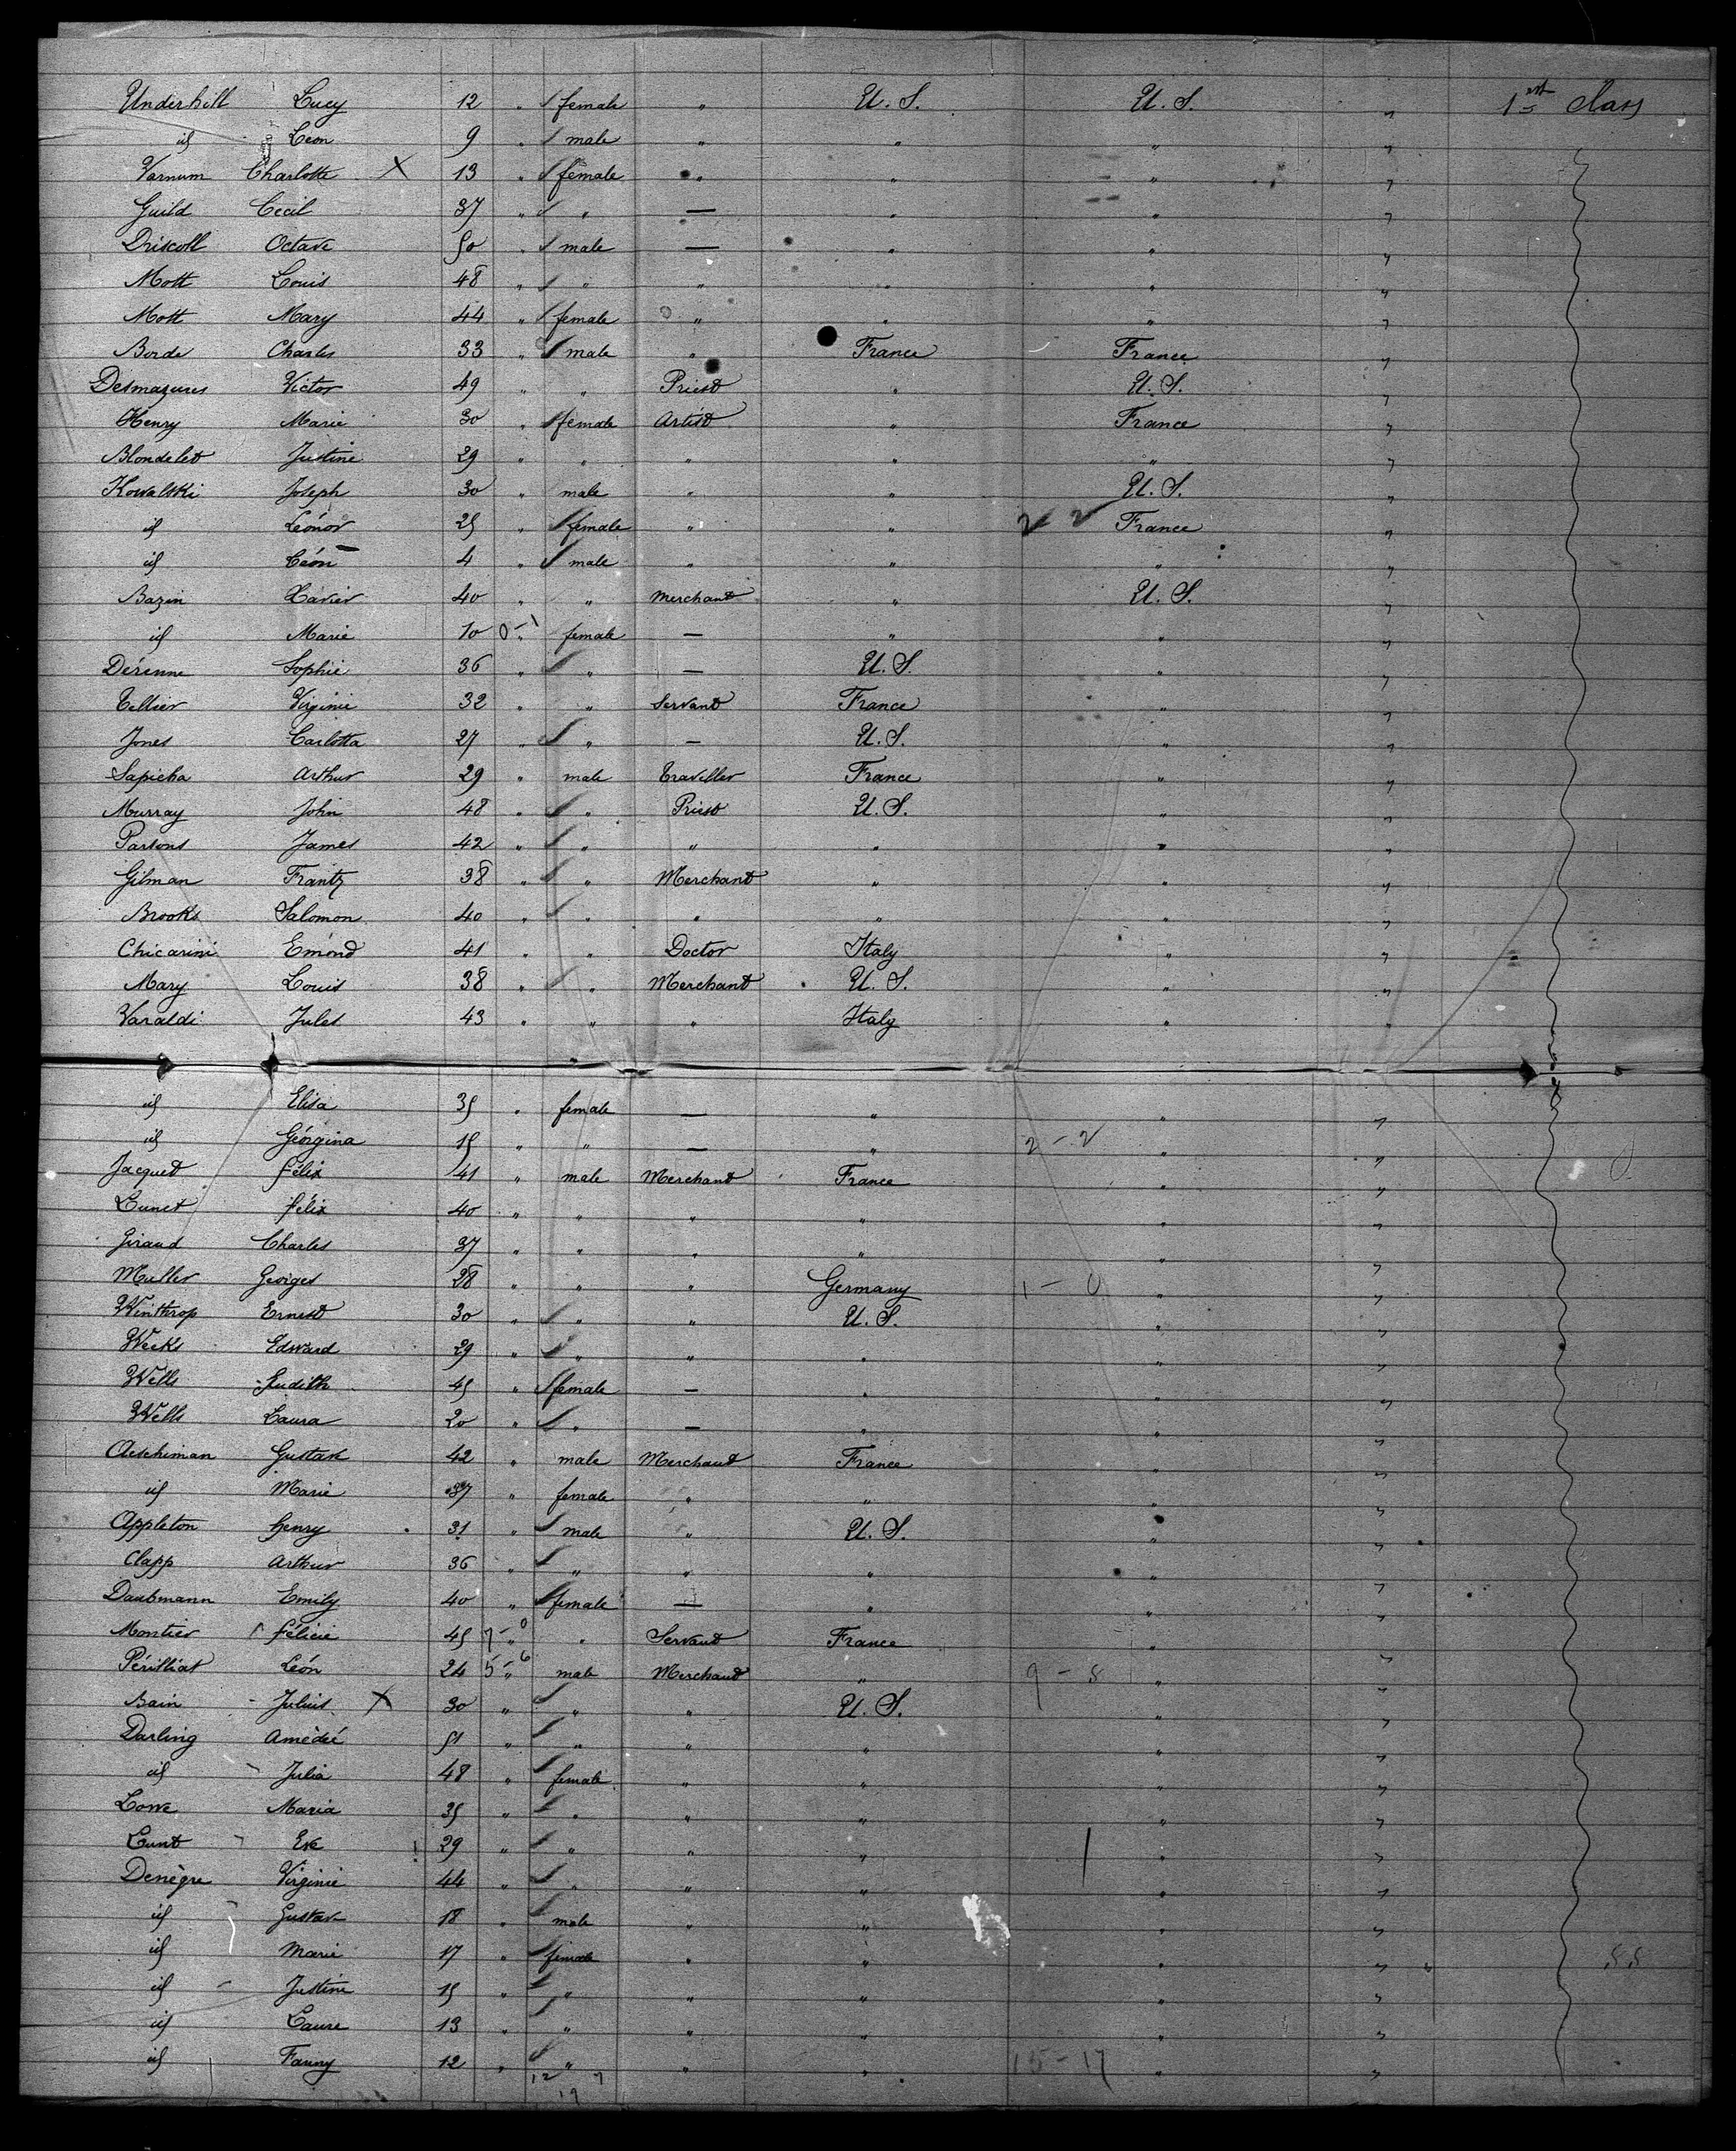 Underhill Lucy 12 " female " U. S. U. S. " 1st class
id Léon 9 " male " " " "
Varnum Charlotte X 13 " female " " " "
Guild Cecil 37 " " — " " "
Driscoll Octave 50 " male — " " "
Mott Louis 48 " " " " " "
Mott Mary 44 " female " " " "
Borde Charles 33 " male " France France "
Desmazures Victor 49 " " Priest " U. S. "
Henry Marie 30 " female Artist " France "
Blondelet Justine 29 " " " " " "
Kowalski Joseph 30 " male " " U. S. "
id Léonor 25 " female " " 2 2 France "
id Léon 4 " male " " " "
Bazin Xavier 40 " " Merchant " U. S. "
id Marie 10 0-1 " female — " " "
Dérenne Sophie 36 " " — U. S. " "
Tellier Virginie 32 " " Servant France " "
Jones Carlotta 27 " " — U. S. " "
Sapieha Arthur 29 " male Traveller France " "
Murray John 48 " " Priest U. S. " "
Parsons James 42 " " " " " "
Gilman Frantz 38 " " Merchant " " "
Brooks Salomon 40 " " " " " "
Chicarini Emond 41 " " Doctor Italy " "
Mary Louis 38 " " Merchant U. S. " "
Varaldi Jules 43 " " " Italy " "
id Elisa 35 " female — " " "
id Géorgina 15 " " — " 2-2 " "
Jacquet félix 41 " male Merchant France " "
Lunet félix 40 " " " " " "
Giraud Charles 37 " " " " " "
Muller Georges 28 " " " Germany 1-0 " "
Winthrop Ernest 30 " " " U. S. " "
Weeks Edward 29 " " " " " "
Wells Judith 45 " female — " " "
Wells Laura 20 " " — " " "
Aeschiman Gustave 42 " male Merchant France " "
id Marie 37 " female " " " "
Appleton henry 31 " male " U. S. " "
Clapp Arthur 36 " " " " "
Daubmann Emily 40 " female — " " "
Montier félicie 45 7-0 " " Servant France " "
Périlliat Léon 24 5-6 " male Merchant " 9-8 " "
Bain Julius X 30 " " " U. S. " "
Darling Amédée 51 " " " " " "
id Julia 48 " female " " " "
Lowe Maria 35 " " " " " "
Lunt Eve 29 " " " " " "
Denègre Virginie 44 " " " " " "
id Gustave 18 " male " " " "
id Marie 17 " female " " " "
id Justine 15 " " " " " "
id Laure 13 " " " " " "
id Fanny 12 " " " " 15-17 " "
12 7
19